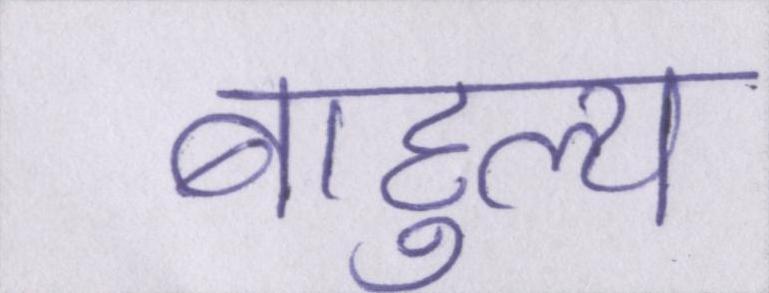 बाहुल्य